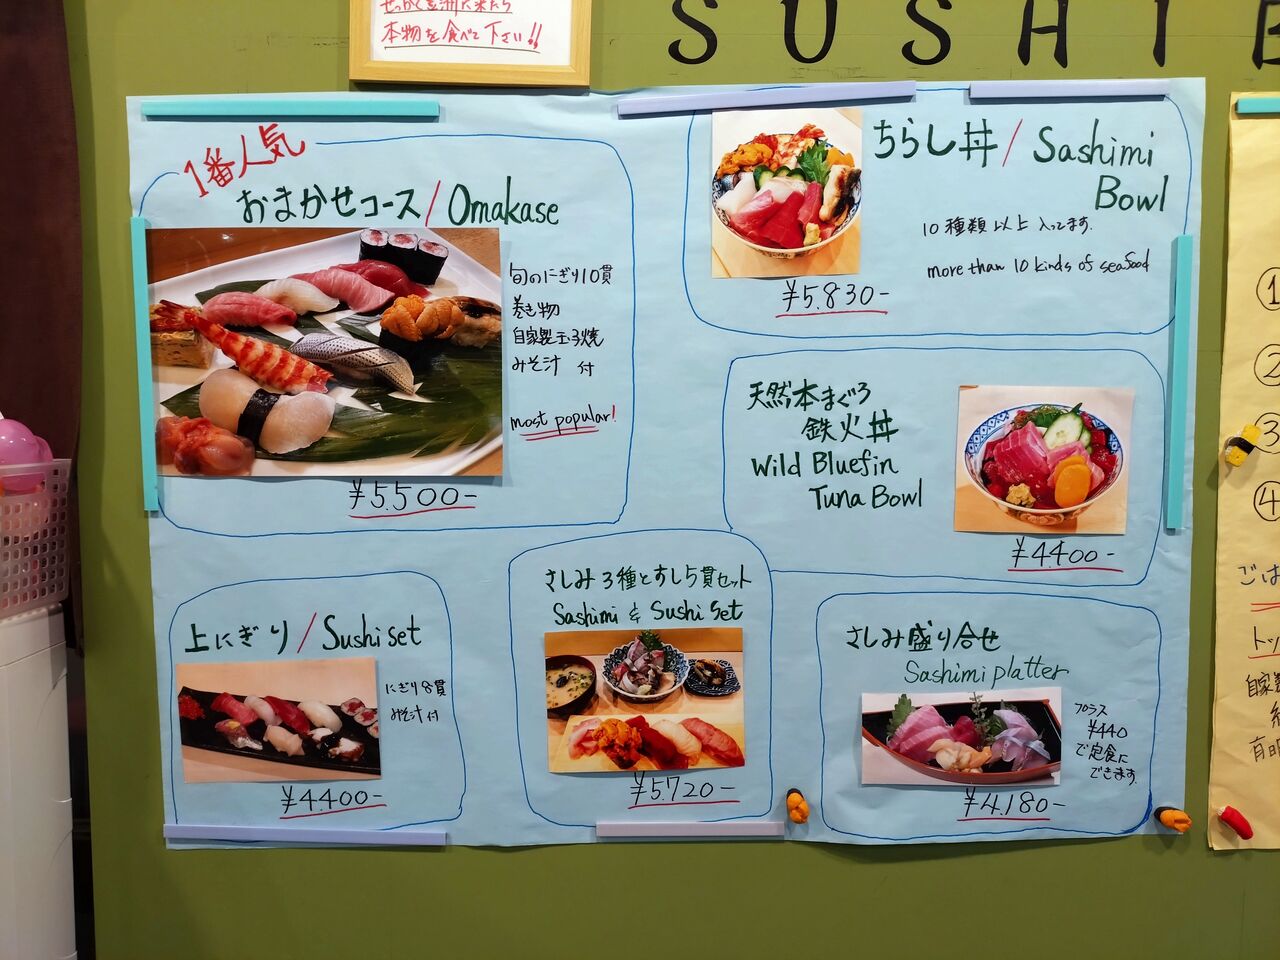 せっかく豊洲に来たら
本物を食べて下さい!!
SUSHI
1番人気
おまかせコース/Omakase
旬のにぎり10貫
巻き物
自家製玉子焼
みそ汁 付
most popular!
¥5.500-
ちらし丼/Sashimi
Bowl
10種類以上入ってます.
more than 10 kinds of seafood
¥5.830-
天然本まぐろ
鉄火丼
Wild Bluefin
Tuna Bowl
¥4400-
上にぎり/Sushi set
にぎり8貫
みそ汁付
¥4400-
さしみ3種とすし5貫セット
Sashimi & Sushi Set
¥5.720-
さしみ盛り合せ
Sashimi platter
プラス
¥440
で定食に
できます.
¥4.180-
①
②
③
④
ごは
トッ
自家製
有明